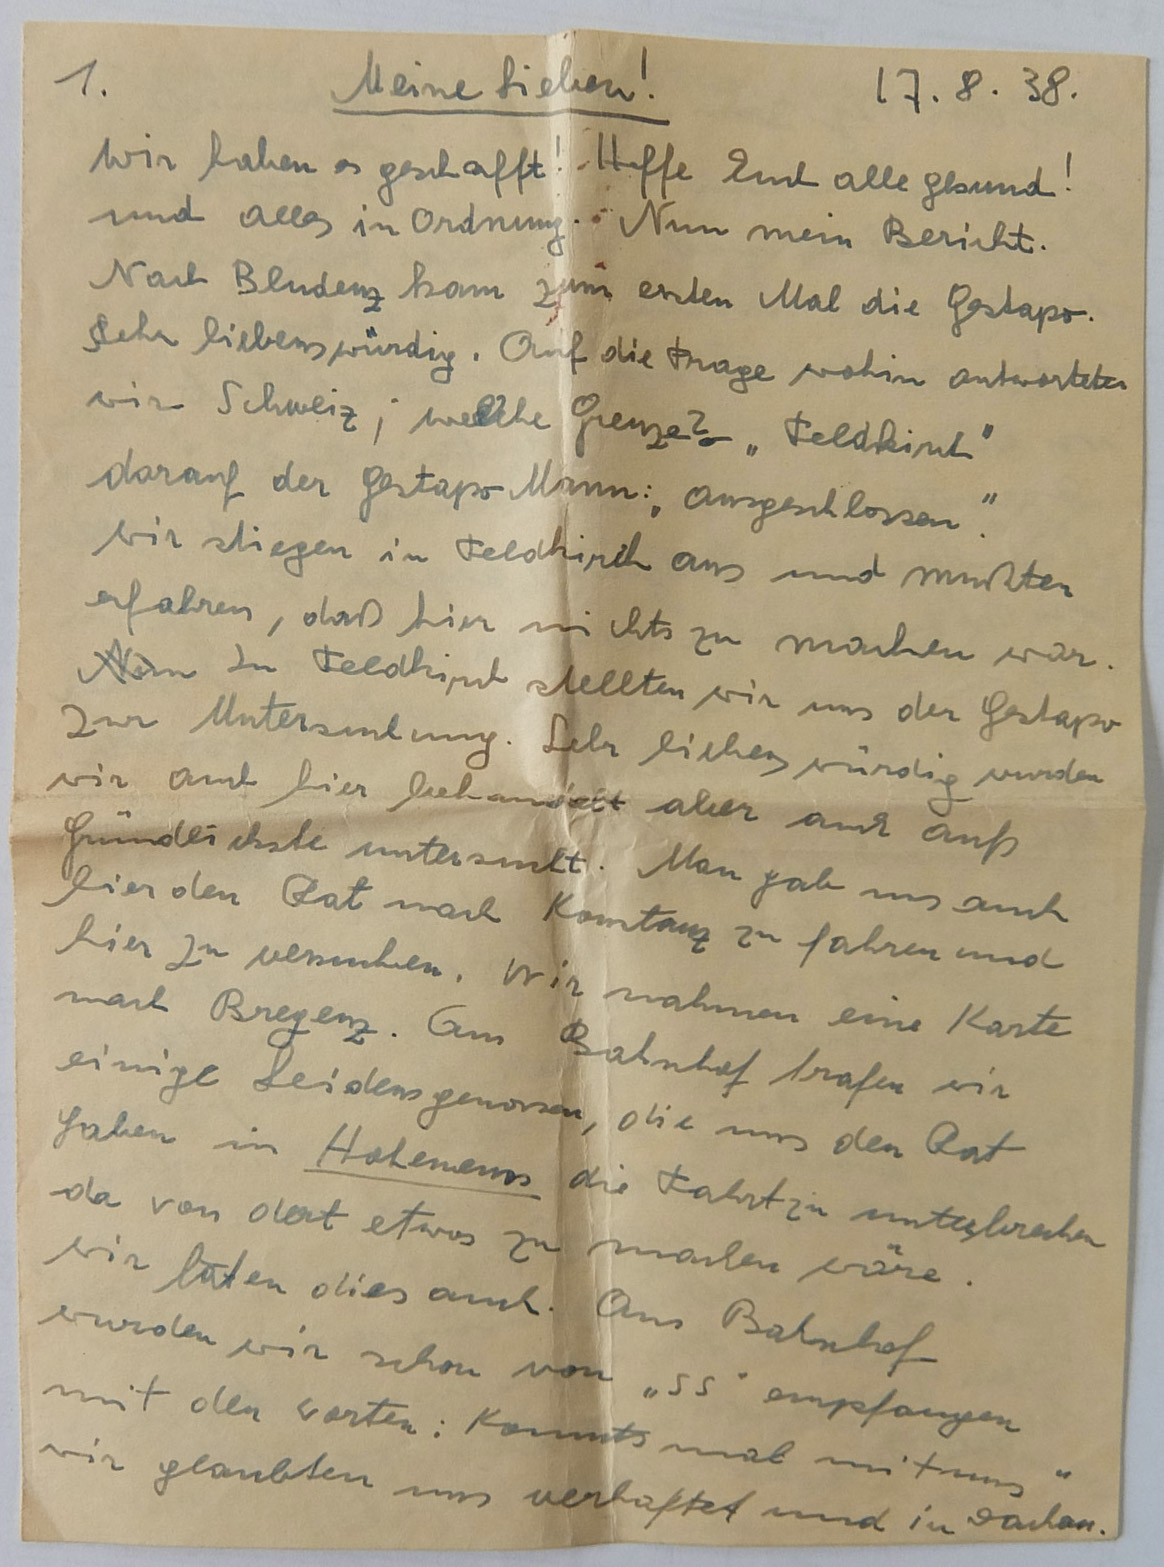 1. Meine Lieben! 17. 8. 38.
Wir haben es geschafft! Hoffe Euch alle gesund!
und alles in Ordnung. Nun mein Bericht.
Nach Bludenz kam zum ersten Mal die Gestapo.
Sehr liebenswürdig. Auf die Frage wohin antworteten
wir Schweiz; welche Grenze? „Feldkirch"
darauf der Gestapo Mann: „ausgeschlossen".
Wir stiegen in Feldkirch aus und mußten
erfahren, daß hier nichts zu machen war.
In Feldkirch stellten wir uns der Gestapo
zur Untersuchung. Sehr liebenswürdig wurden
wir auch hier behandelt aber auch aufs
Gründlichste untersucht. Man gab uns auch
hier den Rat nach Konstanz zu fahren und
hier zu versuchen. Wir nahmen eine Karte
nach Bregenz. Am Bahnhof trafen wir
einige Leidensgenossen, die uns den Rat
gaben in Hohenems die Fahrt zu unterbrechen
da von dort etwas zu machen wäre.
Wir taten dies auch. Am Bahnhof
wurden wir schon von „SS" empfangen
mit den Worten: Kommts mal mit uns"
wir glaubten uns verhaftet und in Dachau.